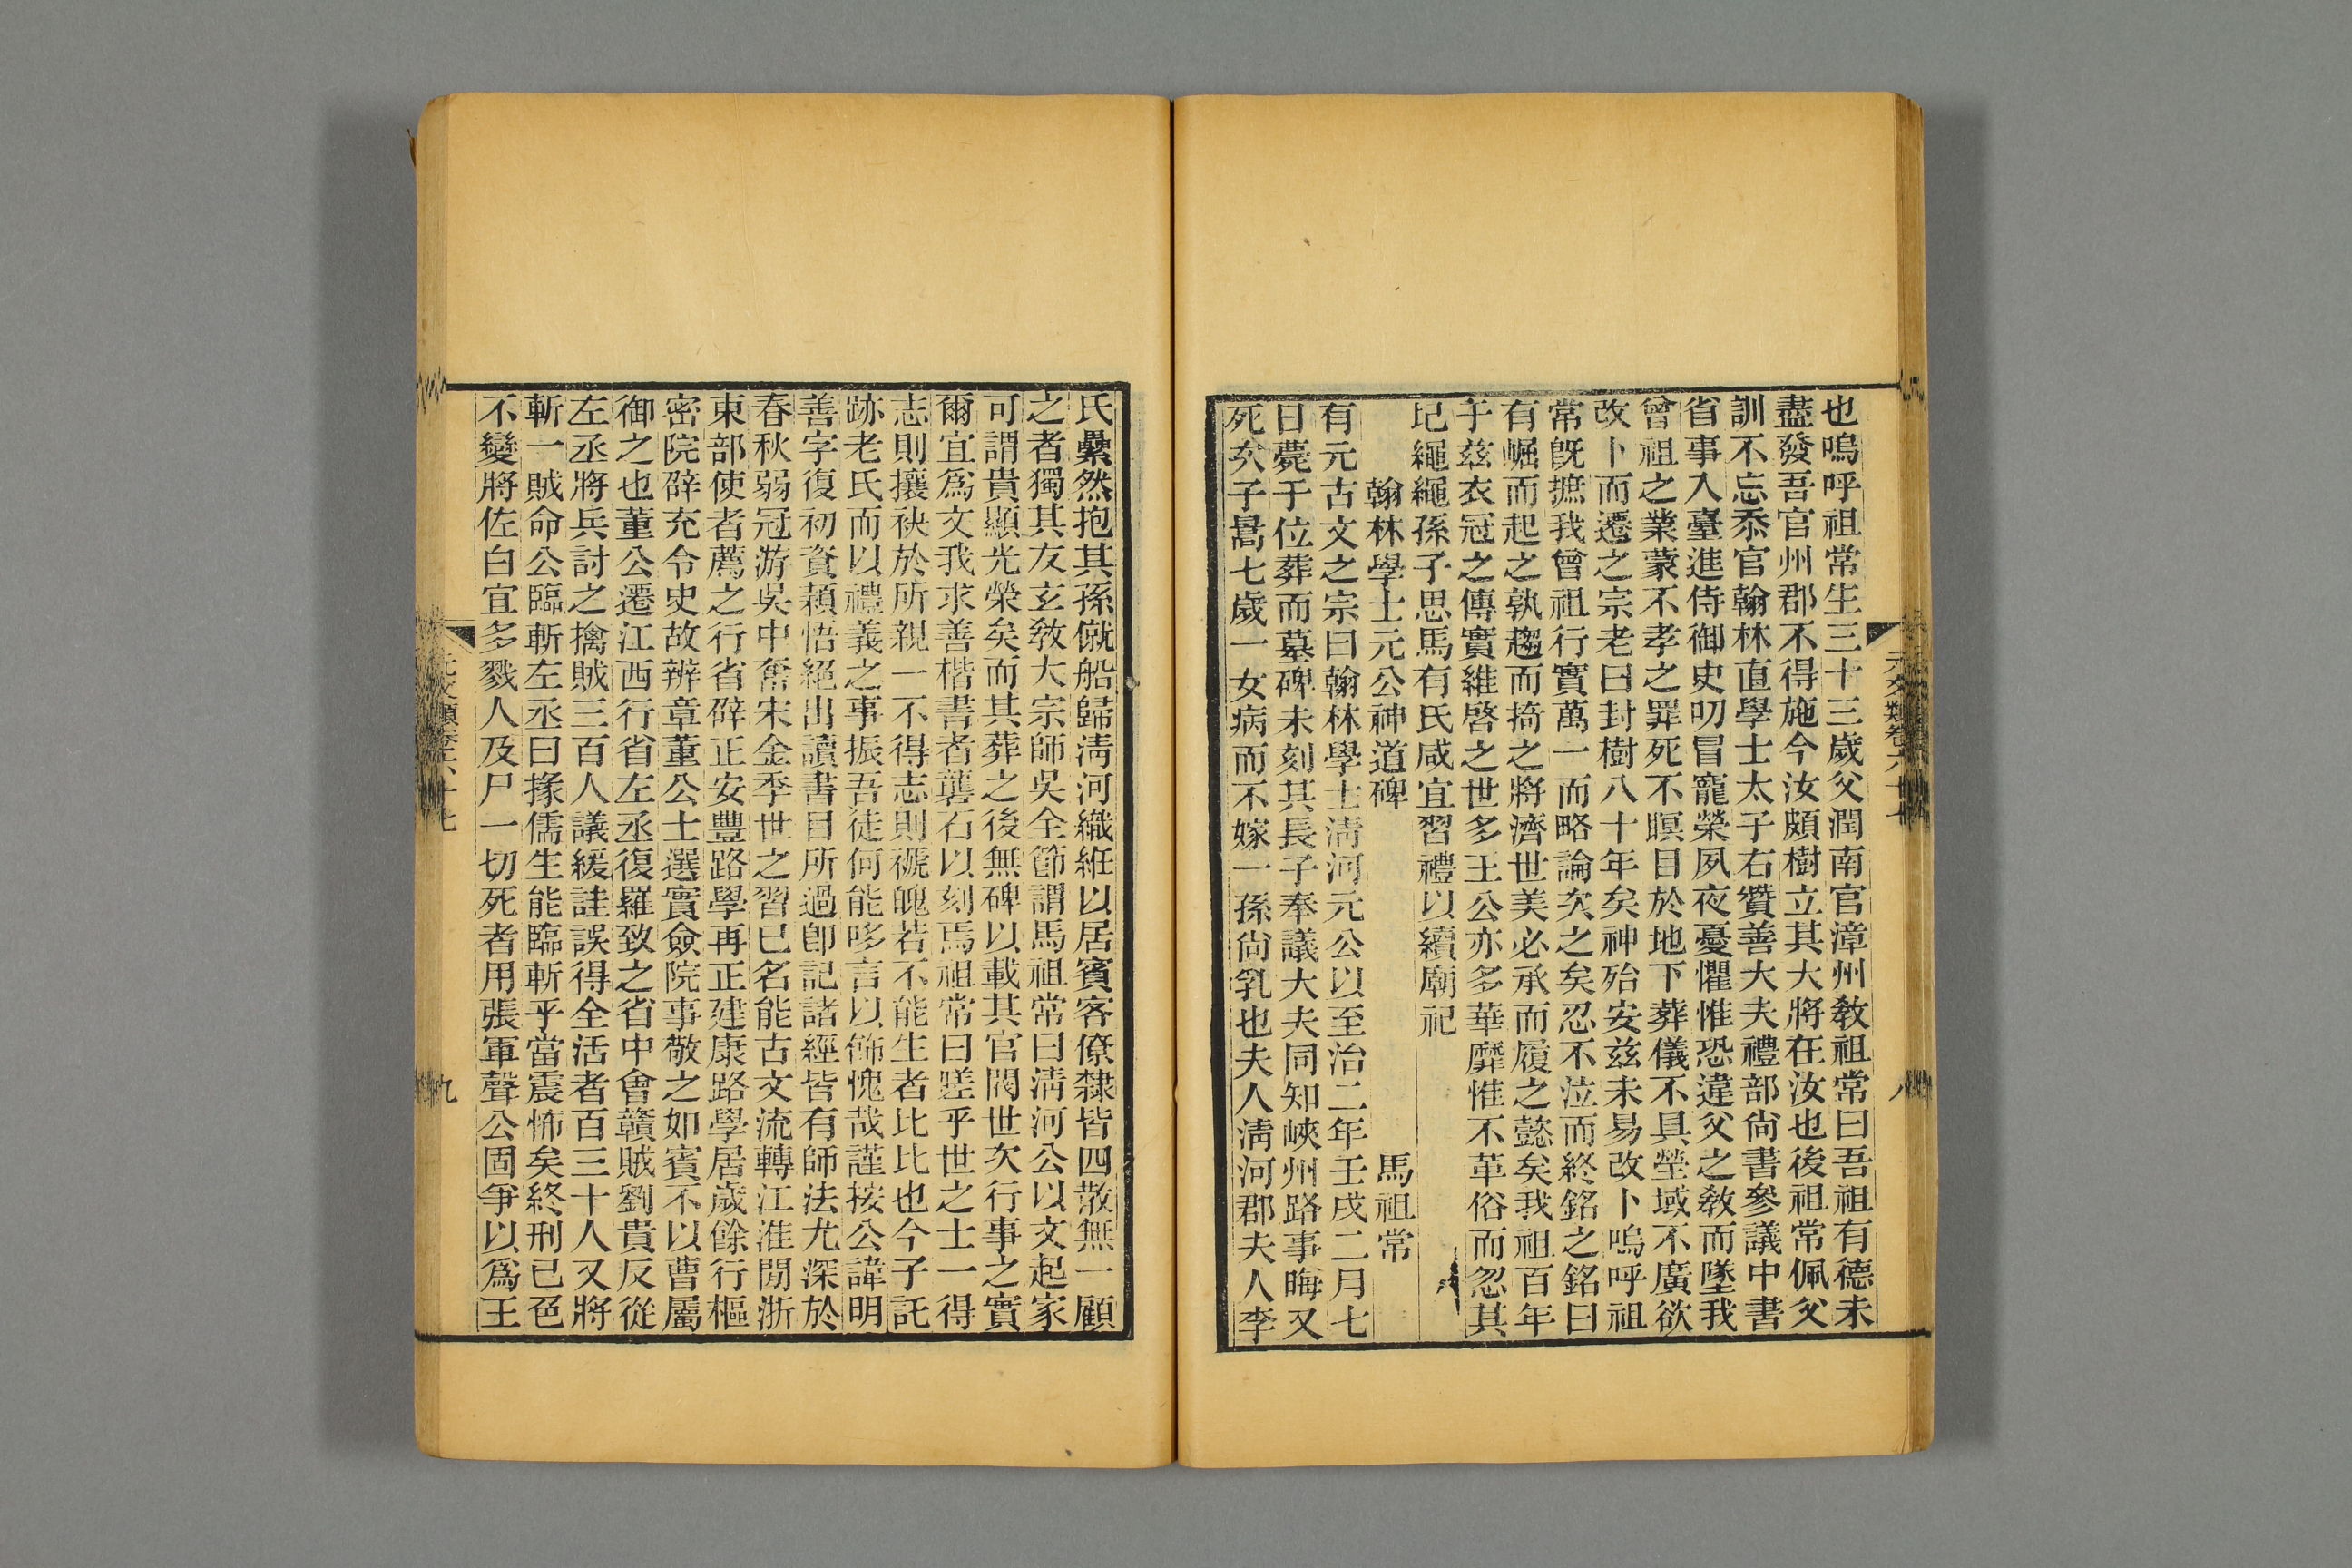 也嗚呼祖常生三十三歲父潤南官漳州教祖常曰吾祖有德未
盡發吾官州郡不得施今汝頗樹立其大將在汝也後祖常佩父
訓不忘忝官翰林直學士太子右贊善大夫禮部尙書參議中書
省事入臺進侍御史叨冒寵榮夙夜憂懼惟恐違父之教而墜我
曾祖之業蒙不孝之罪死不瞑目於地下葬儀不具塋域不廣欲
改卜而遷之宗老曰封樹八十年矣神殆安兹未易改卜嗚呼祖
常旣摭我曾祖行實萬一而略論次之矣忍不泣而終銘之銘曰
有崛而起之孰趨而掎之將濟世美必承而履之懿矣我祖百年
于兹衣冠之傳實維啓之世多王公亦多華靡惟不革俗而忽其
圮繩繩孫子思馬有氏咸宜習禮以續廟祀
翰林學士元公神道碑 馬祖常
有元古文之宗曰翰林學士清河元公以至治二年壬戌二月七
日薨于位葬而墓碑未刻其長子奉議大夫同知峽州路事晦又
死次子暠七歲一女病而不嫁一孫尙乳也夫人清河郡夫人李
元文類卷六十七 八
氏纍然抱其孫僦船歸清河織紝以居賓客僚隸皆四散無一顧
之者獨其友玄敎大宗師吳全節謂馬祖常曰清河公以文起家
可謂貴顯光榮矣而其葬之後無碑以載其官閥世次行事之實
爾宜爲文我求善楷書者礱石以刻焉祖常曰嗟乎世之士一得
志則攘袂於所親一不得志則褫魄若不能生者比比也今子託
跡老氏而以禮義之事振吾徒何能哆言以飾愧哉謹按公諱明
善字復初資穎悟絕出讀書目所過卽記諸經皆有師法尤深於
春秋弱冠游吳中奮宋金季世之習已名能古文流轉江淮閒浙
東部使者薦之行省辟正安豐路學再正建康路學居歲餘行樞
密院辟充令史故辨章董公士選實僉院事敬之如賓不以曹屬
御之也董公遷江西行省左丞復羅致之省中會贛賊劉貴反從
左丞將兵討之擒賊三百人議緩詿誤得全活者百三十人又將
斬一賊命公臨斬左丞曰掾儒生能臨斬乎當震怖矣終刑已色
不變將佐白宜多戮人及尸一切死者用張軍聲公固爭以爲王
元文類卷六十七 九